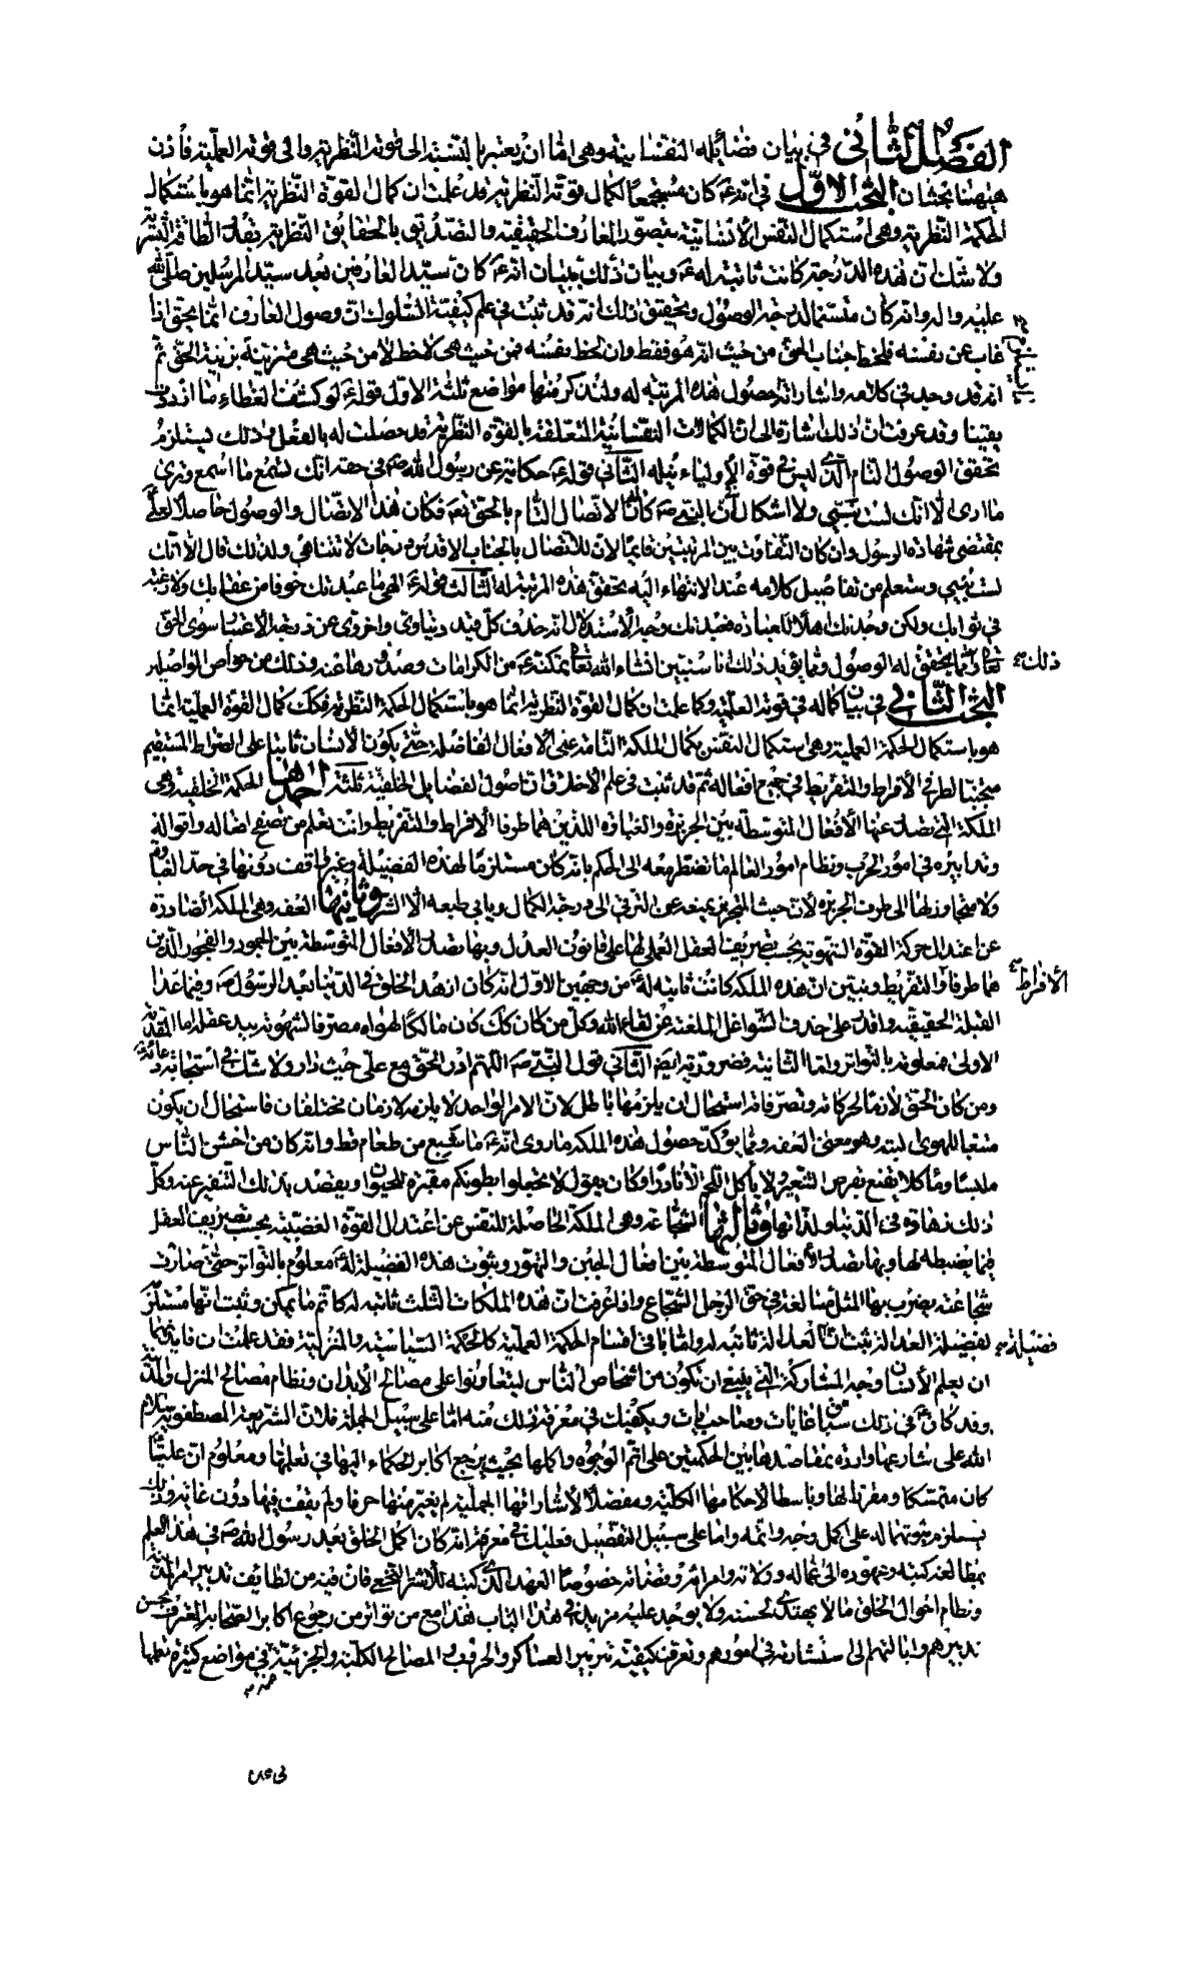 الفصل الثاني في بيان فضائله النفسانية وهي اما ان يعتبر بالنسبة الى قوته النظرية او الى قوته العملية فاذن
هيهنا بحثان البحث الاول في انه ع كان مستجمعا لكمال قوته النظرية قد علمت ان كمال القوة النظرية انما هو باستكمال
الحكمة النظرية وهي استكمال النفس الانسانية بتصور المعارف الحقيقية والتصديق بالحقايق النظرية بقدر الطاقة البشرية
ولا شك ان هذه الدرجة كانت ثابتة له ع وبيان ذلك ببيان انه ع كان سيد العارفين بعد سيد المرسلين صلى الله
عليه واله وانه كان متسنما لدرجة الوصول وتحقيق ذلك انه قد ثبت في علم كيفية السلوك ان وصول العارف انما يحق اذا
غاب عن نفسه فلحظ جناب الحق من حيث انه هو فقط وان لحظ نفسه فمن حيث هي لاحظ لا من حيث هي متزينة بزينة الحق ثم
انه قد وجد في كلامه واشاراته حصول هذه المرتبة له ولنذكر منها مواضع ثلثة الاول قوله ع لو كشف الغطاء ما ازددت
يقينا وقد عرفت ان ذلك اشارة الى ان الكمالات النفسانية المتعلقة بالقوة النظرية قد حصلت له بالفعل وذلك يستلزم
تحقق الوصول التام الذي ليس في قوة الاولياء مثله الثاني قوله ع حكاية عن رسول الله ص في حقه انك تسمع ما اسمع وترى
ما ارى الا انك لست بنبي ولا اشكال ان النبي ص كان له الاتصال التام بالحق تع فكان هذا الاتصال والوصول حاصلا لعلي ع
بمقتضى شهادة الرسول وان كان التفاوت بين المرتبتين قايما لان للاتصال بالجناب الاقدس درجات لا تتناهى ولذلك قال الا انك
لست بنبي وستعلم من تفاصيل كلامه عند الانتهاء اليه تحقق هذه المرتبة له الثالث قوله ع الهي ما عبدتك خوفا من عقابك ولا رغبة
في ثوابك ولكن وجدتك اهلا للعبادة فعبدتك وجه الاستدلال انه حذف كل قيد دنياوي واخروي عن درجة الاعتبار سوى الحق
ذلك
تعالى ومما يحقق له الوصول ومما يؤيد ذلك انا سنبين انشاء الله تعالى تمكنه ع من الكرامات وصدورها عنه وذلك من خواص الواصلين
البحث الثاني في بيان كماله في قوته العملية وكما علمت ان كمال القوة النظرية انما هو باستكمال الحكمة النظرية فكك كمال القوة العملية انما
هو باستكمال الحكمة العملية وهي استكمال النفس بكمال الملكة التامة على الافعال الفاضلة حتى يكون الانسان ثابتا على الصراط المستقيم
متجنبا لطرفي الافراط والتفريط في جميع افعاله ثم قد ثبت في علم الاخلاق ان اصول الفضايل الخلقية ثلثة احدها الحكمة الخلقية وهي
الملكة التي تصدر عنها الافعال المتوسطة بين الجربزة والغباوة اللذين هما طرفا الافراط والتفريط وانت تعلم من تصفح افعاله واقواله
وتدابيره في امور الحرب ونظام امور العالم ما تضطر معه الى الحكم بانه كان مستلزما لهذه الفضيلة وغير واقف دونها في حد الغباوة
ولا متجاوز لها الى طرف الجربزة لان خبث المتجربز يمنعه عن الترقي الى درجة الكمال ويابى طبعه الا الشر وثانيها العفة وهي الملكة الصادرة
عن اعتدال حركة القوة الشهوية بحسب تصريف العقل العملي لها على قانون العدل وبها تصدر الافعال المتوسطة بين الجمود والفجور اللذين
الافراط
هما طرفا والتفريط ونبين ان هذه الملكة كانت ثابتة له ع من وجهين الاول انه كان ازهد الخلق في الدنيا بعد الرسول ص وفيما عدا
القبلة الحقيقية واقدر على حذف الشواغل الملفتة عن لقاء الله وكل من كان كك كان مالكا لهواه مصرفا لشهوته بيد عقله اما المقدمة
الاولى فمعلومة بالتواتر واما الثانية فضرورية ايض الثاني قول النبي ص اللهم ادر الحق مع علي حيث دار ولا شك في استجابة دعائه ص
ومن كان الحق لازما لحركاته وتصرفاته استحال ان يلزمها باطل لان الامر الواحد لا يلزمه لازمان مختلفان فاستحال ان يكون
متبعا للهوى البتة وهو معنى العفة ومما يؤكد حصول هذه الملكة ما روى انه ع ما شبع من طعام قط وانه كان من اخشن الناس
ملبسا ومأكلا يقنع بقرص الشعير ولا يأكل اللحم الا نادرا وكان يقول لا تجعلوا بطونكم مقبرة للحيوان ويقصد بذلك التنفير عنه وكل
ذلك زهادة في الدنيا ولذاتها وثالثها الشجاعة وهي الملكة الحاصلة للنفس عن اعتدال القوة الغضبية بحسب تصريف العقل
فيما يضبطه لها وبها تصدر الافعال المتوسطة بين افعال الجبن والتهور وثبوت هذه الفضيلة له ع معلوم بالتواتر حتى صارت
شجاعته يضرب بها المثل مبالغة في حق الرجل الشجاع واذا عرفت ان هذه الملكات الثلث ثابتة له كاتم ما يمكن وثبت انها مستلزمة
فضيلة
لفضيلة العدالة ثبت ان العدالة ثابتة له واما باقي اقسام الحكمة العملية كالحكمة السياسية والمنزلية فقد علمت ان فايدتهما
ان يعلم الانسان وجه المشاركة التي ينبغي ان تكون من اشخاص الناس ليتعاونوا على مصالح الابدان ونظام مصالح المنزل والمدينة
وقد كان ع في ذلك سباق غايات وصاحب ايات ويكفيك في معرفة ذلك منه اما على سبيل الجملة فلان الشريعة المصطفوية سلام
الله على شارعها واردة بمقاصد هاتين الحكمتين على اتم الوجوه واكملها بحيث يرجع اكابر الحكماء اليها في تعلمها ومعلوم ان عليا ع
كان متمسكا ومقررا لها وباسطا لاحكامها الكلية ومفصلا لاشاراتها الجملية لم يغير منها حرفا ولم يقف فيها دون غاية وذلك
يستلزم ثبوتهما له على اكمل وجه واتمه واما على سبيل التفصيل فعليك في معرفة انه كان اكمل الخلق بعد رسول الله ص في هذا العلم
بمطالعة كتبه وعهوده الى عماله وولاته وامرائه وقضاته خصوصا العهد الذي كتبه للاشتر النخعي فان فيه من لطايف تدبير امر المدن
ونظام احوال الخلق ما لا يهتدي لحسنه ولا يوجد عليه مزيد في هذا الباب هذا مع من تواتر من رجوع اكابر الصحابة المعترف بحسن
تدبيرهم وايالتهم الى استشارته في امورهم وتعرف كيفية تدبير العساكر والحروب والمصالح الكلية والجزئية في مواضع كثيرة نعلمها